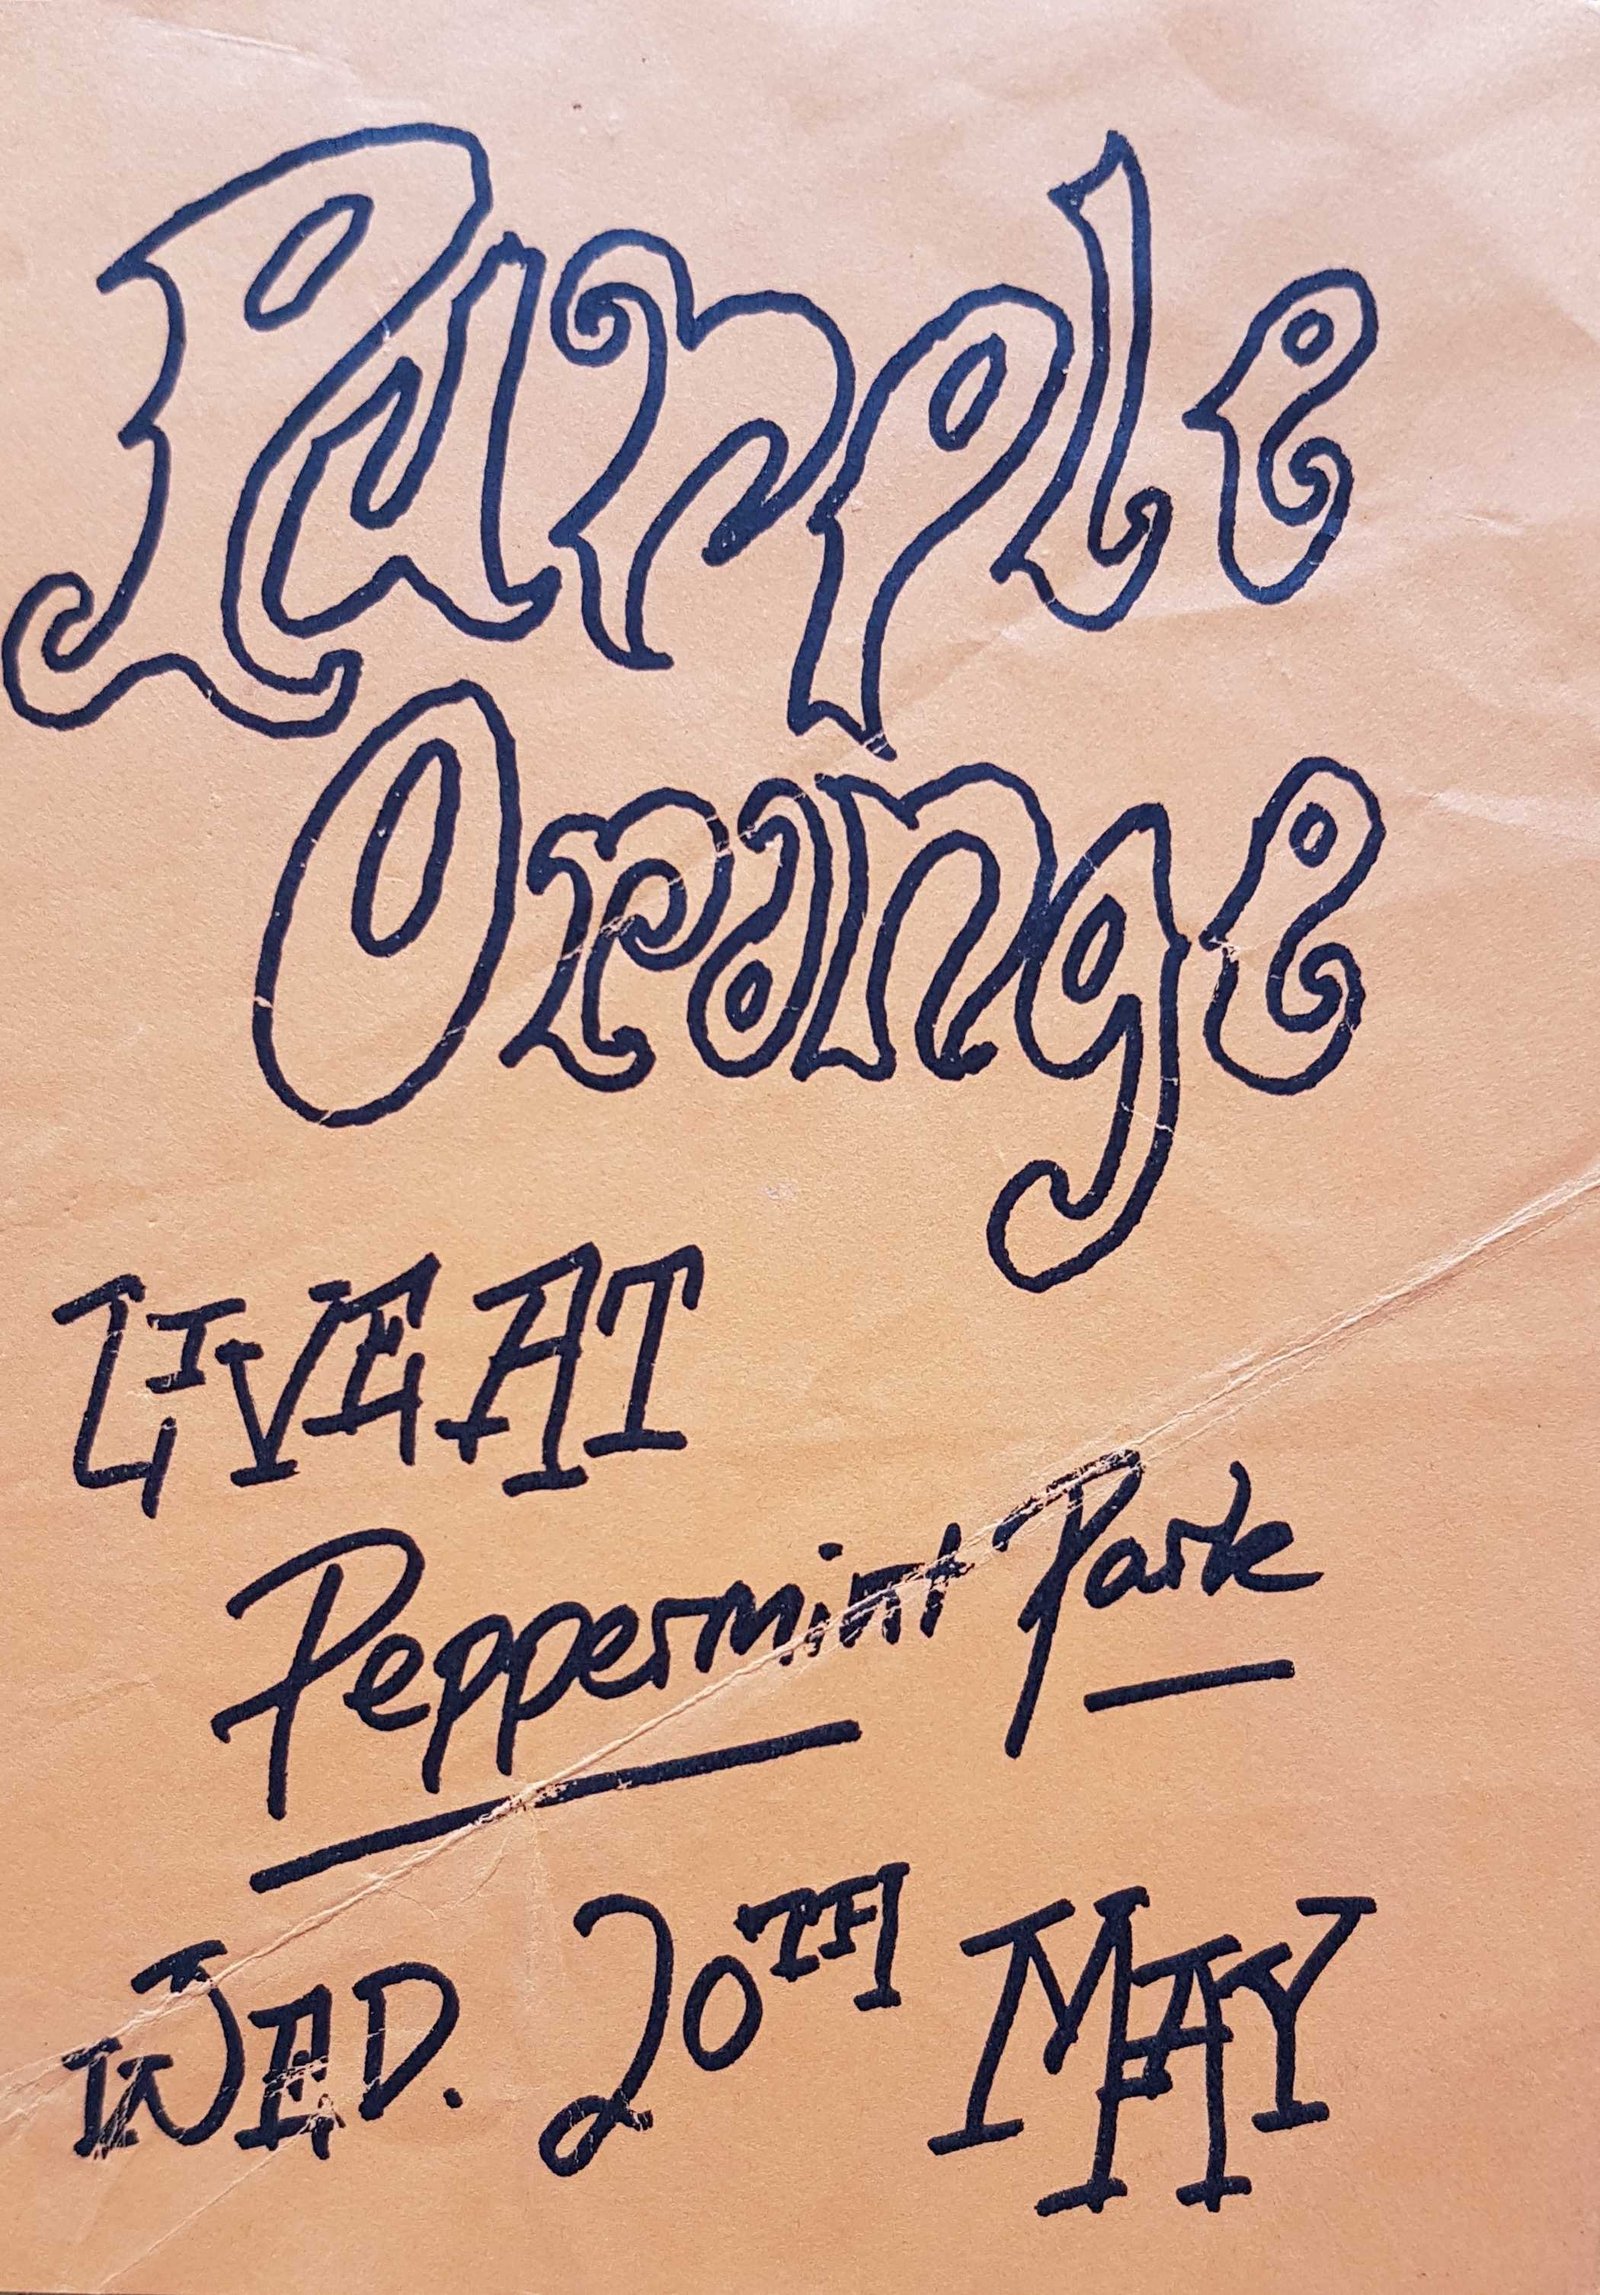 Purple
Orange
LIVE AT
Peppermint Park
WED. 20TH MAY